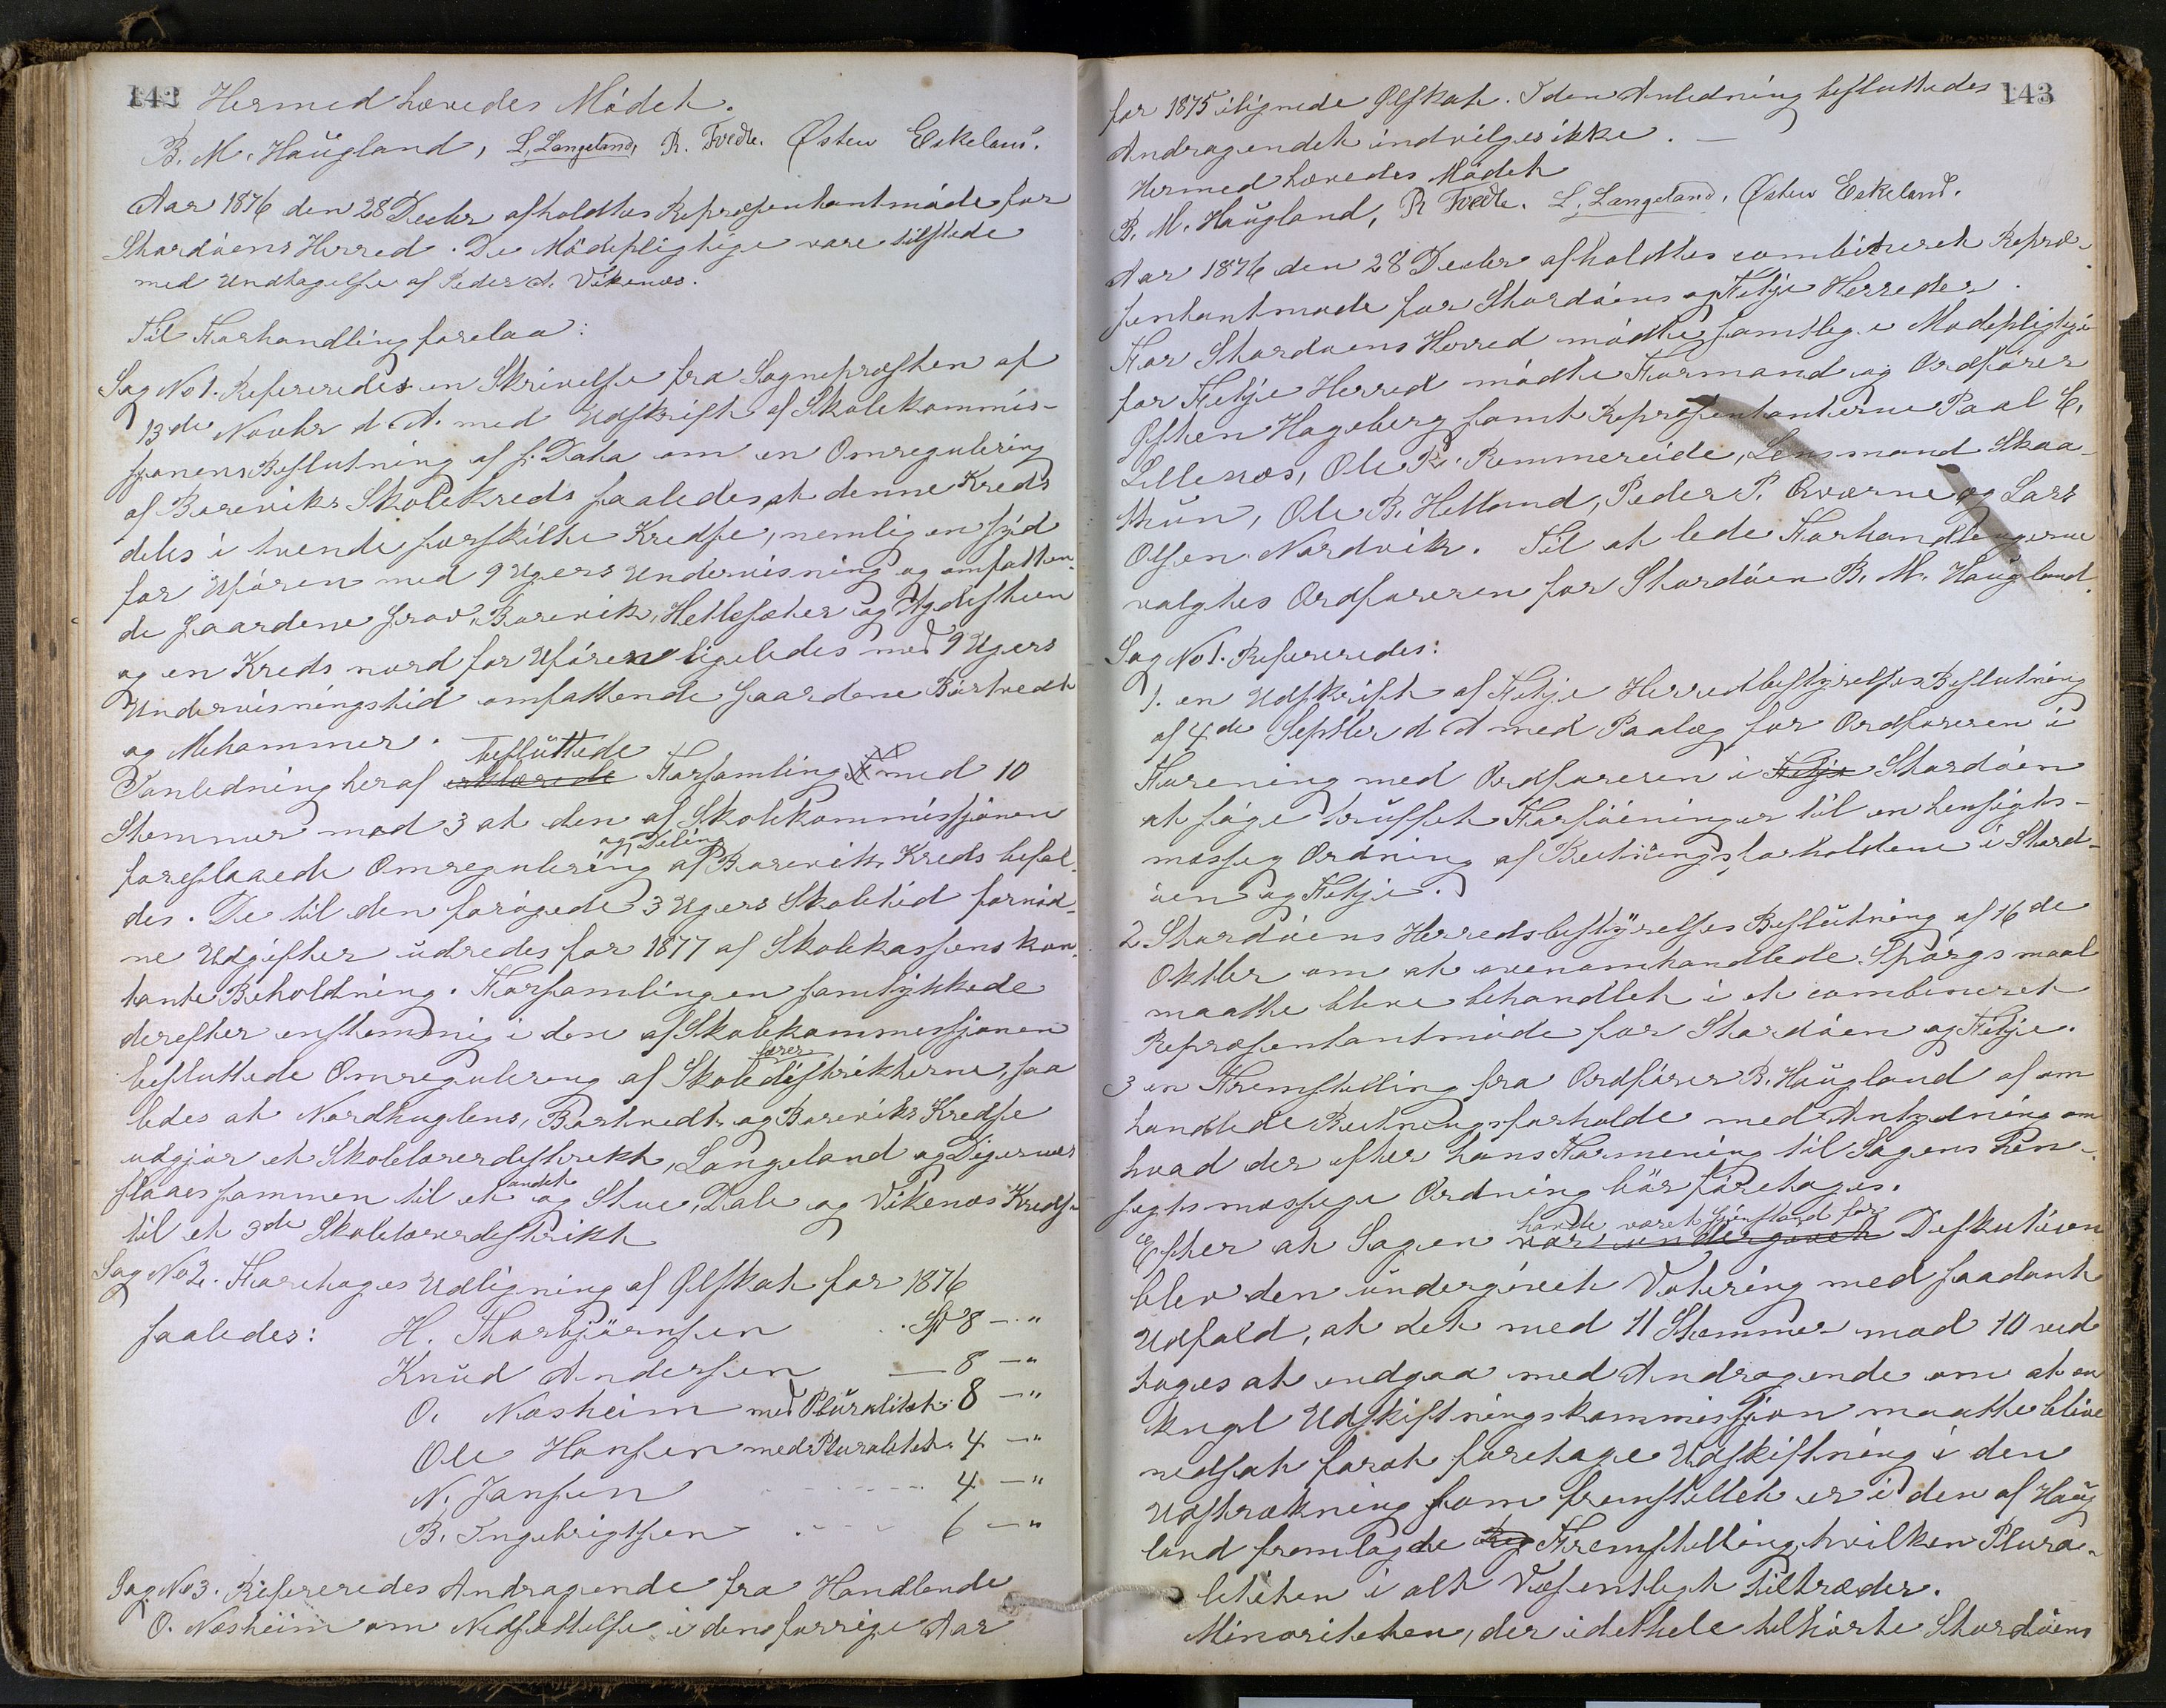 142
Hermed hævedes Mödet.
B. M. Haugland, L. Langeland, R. Tvedte. Østen Eskeland.
Aar 1876 den 28 Decbr afholdtes Repræsentantmöde for
Stordöens Herred. De Mödepligtige vare tilstede
med Undtagelse af Peder A. Vikenæs.
Til Forhandling forelaa:
Sag No 1. Refereredes en Skrivelse fra Sognepræsten af
13de Novbr d A. med Udskrift af Skolekommis-
sjonens Beslutning af s. Data om en Omregulering
af Boreviks Skolekreds saaledes at denne Kreds
deles i tvende særskilte Kredse, nemlig en syd
for Uføren med 9 Ugers Undervisning og omfatten-
de Gaardene Grov, Borevik, Hellesæter og Agdesteen
og en Kreds nord for Uføren ligeledes med 9 Ugers
Undervisningstid omfattende Gaardene Börtvedt
og Mehammer.
I Anledning heraf erklærede besluttede Forsamling med 10
Stemmer mod 3 at den af Skolekommissjonen
foreslaaede Omregulering og Deling af Borevik Kreds befal-
des. De til den forögede 3 Ugers Skoletid fornöd-
ne Udgifter udredes for 1877 af Skolekassens kon-
tante Beholdning. Forsamlingen samtykkede
derefter enstemmig i den af Skolekommissjonen
besluttede Omregulering af Skolelærerdistrikterne, saa
ledes at Nordhuglens, Bortvedt og Boreviks Kredse
udgjör et Skolelærerdistrikt, Langeland og Digernæs
slaaes sammen til et andet og Stue, Dale og Vikenæs Kredse
til et 3de Skolelærerdistrikt
Sag No 2. Foretages Udligning af Ølskat for 1876
saaledes: H. Thorbjörnsen Sp 8 - "
Knud Andersen — 8 - "
O. Næsheim med Pluralitet 8 - "
Ole Hansen med Pluralitet 4 - "
N. Jansen 4 - "
B. Ingebrigtsen 6 - "
Sag No 3. Refereredes Andragende fra Handlende
O. Næsheim om Nedsættelse i den forrige Aar
143
for 1875 ilignede Ølskat. I den Anledning besluttedes
Andragendet indvilges ikke. —
Hermed hævedes Mödet
B. M. Haugland, R Tvedte. L. Langeland. Østen Eskeland.
Aar 1876 den 28 Decbr afholdtes combineret Repræ-
sentantmöde for Stordöens og Fitje Herreder.
For Stordöens Herred mödte samtlige Mödepligtige
for Fitje Herred mödte Formand og Ordförer
Østen Hageberg samt Repræsentanterne Paal E.
Lillenæs, Ole R. Rommereide, Lensmand Skaa-
thun, Ole B. Helland, Peder P. Qværne og Lars
Olsen Nordvik. Til at lede Forhandlingerne
valgtes Ordföreren for Stordöen B. M. Haugland.
Sag No 1. Refereredes:
1. en Udskrift af Fitje Herredbestyrelses Beslutning
af 4de Septbr d A med Paalæg for Ordföreren i
Forening med Ordföreren i Fitje Stordöen
at söge truffet Forföininger til en hensigts-
mæssig Ordning af Beitningsforholdene i Stord-
öen og Fitje.
2. Stordöens Herredsbestyrelses Beslutning af 16de
Oktbr om at ovenomhandlede Spörgsmaal
maatte blive behandlet i et combineret
Repræsentantmöde for Stordöen og Fitje.
3 en Fremstilling fra Ordförer B. Haugland af om
handlede Beitningsforholde med Antydning om
hvad der efter hans Formening til Sagens hen-
sigtsmæssige Ordning bör foretages.
Efter at Sagen var undergivet havde været Gjenstand for Diskusion
blev den undergivet Votering med saadant
Udfald, at det med 11 Stemmer mod 10 ved
toges at indgaa med Andragende om at en
kngl Udskiftningskommissjon maatte blive
nedsat forat foretage Udskiftning i den
Udstrækning som fremstillet er i den af Haug
land fremlagde Fremstilling, hvilken Plura-
liteten i alt Væsentligt tiltræder.
Minoriteten, der i dethele tilhörte Stordöens